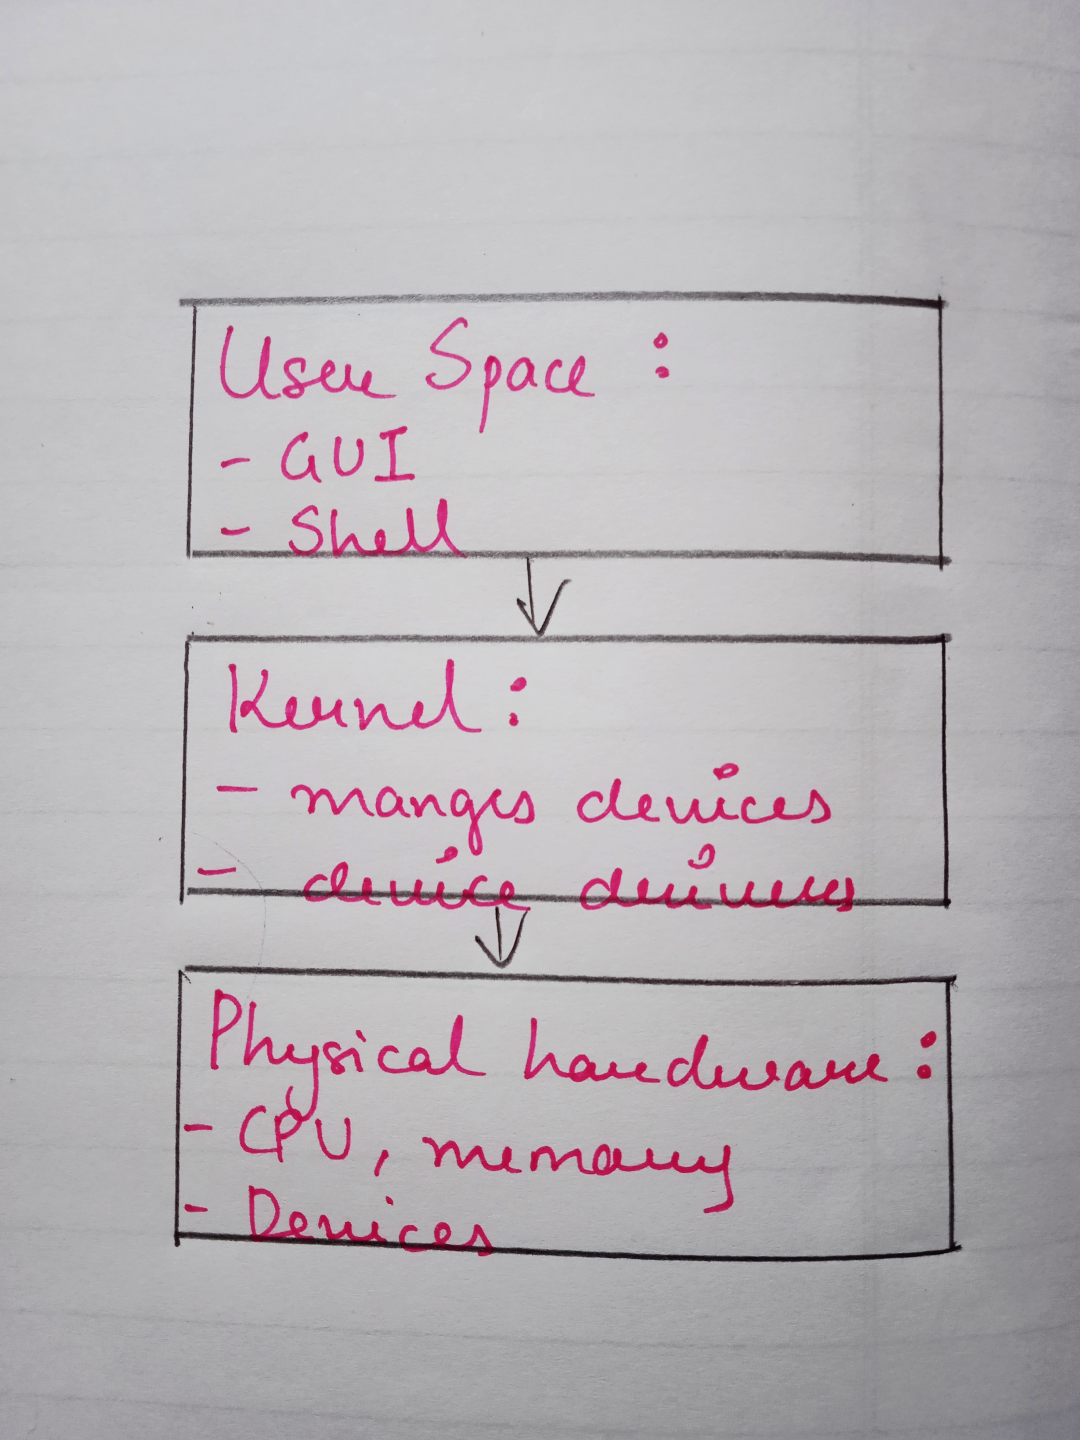 User Space :
- GUI
- Shell
Kernel :
- manges devices
- device drivers
Physical hardware :
- CPU, memory
- Devices